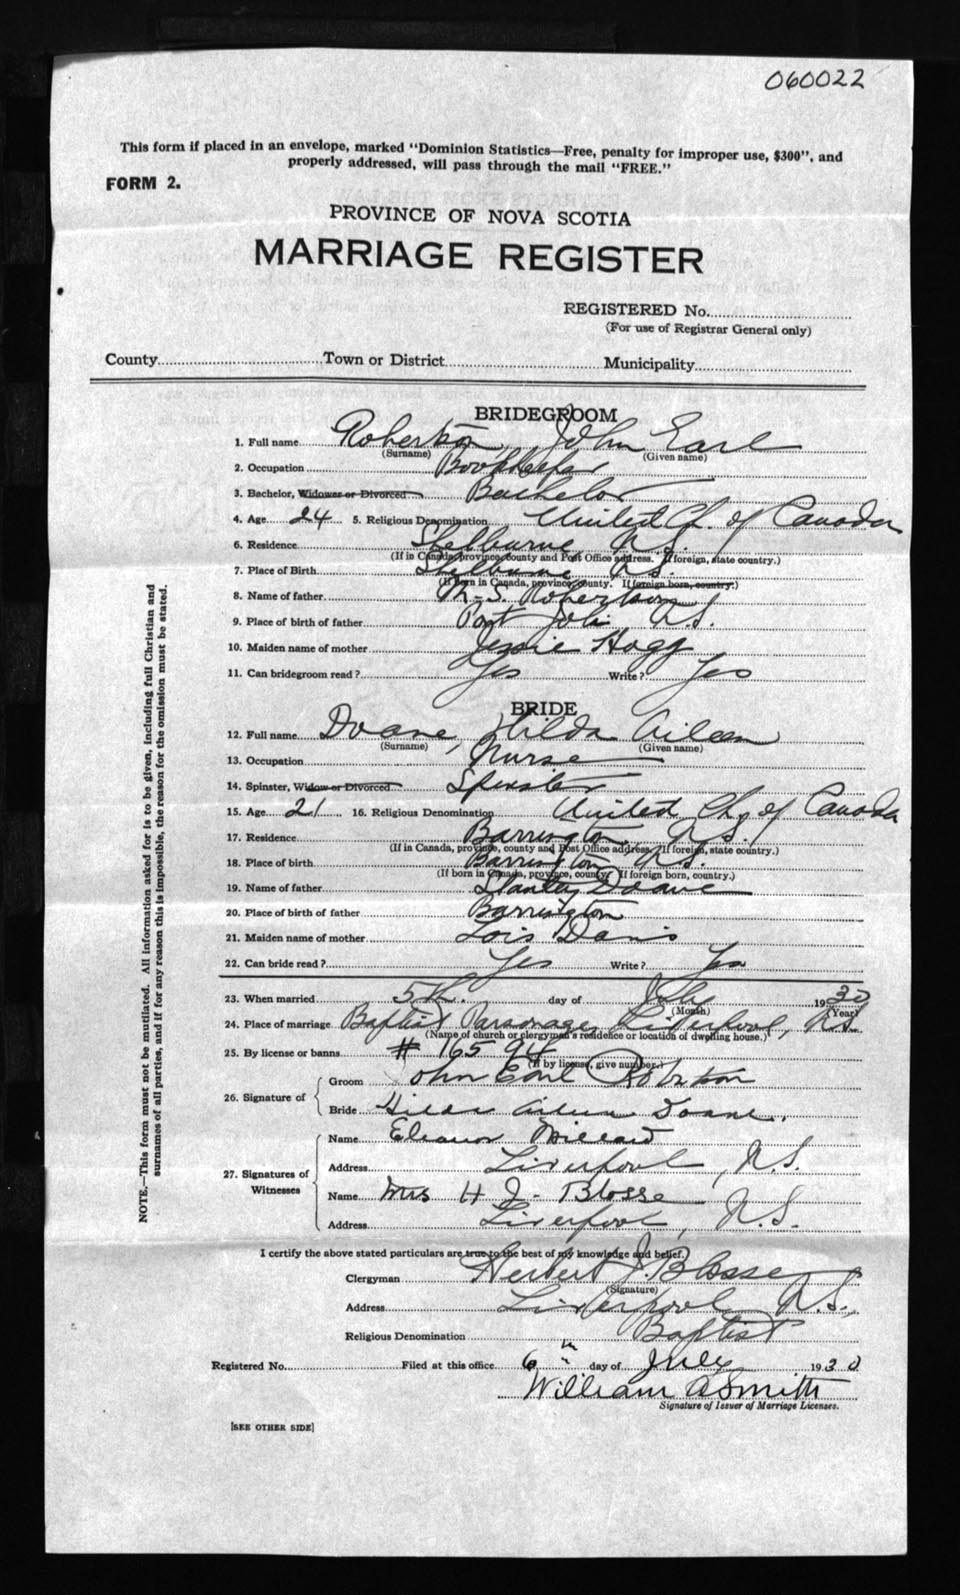 060022
This form if placed in an envelope, marked "Dominion Statistics—Free, penalty for improper use, $300", and
properly addressed, will pass through the mail "FREE."
FORM 2.
PROVINCE OF NOVA SCOTIA
MARRIAGE REGISTER
REGISTERED No.
(For use of Registrar General only)
County Town or District Municipality
BRIDEGROOM
1. Full name Robertson, John Earl
(Surname) (Given name)
2. Occupation Bookkeeper
3. Bachelor, Widower or Divorced Bachelor
4. Age 24 5. Religious Denomination United Ch. of Canada
6. Residence Shelburne, N.S.
(If in Canada, province, county and Post Office address. If foreign, state country.)
7. Place of Birth Shelburne, N.S.
(If Born in Canada, province, county. If foreign born, country.)
8. Name of father M. S. Robertson
9. Place of birth of father Port Joli N.S.
10. Maiden name of mother Jessie Hogg
11. Can bridegroom read? Yes Write? Yes
BRIDE
12. Full name Doane, Hilda Aileen
(Surname) (Given name)
13. Occupation Nurse
14. Spinster, Widow or Divorced Spinster
15. Age 21 16. Religious Denomination United Ch. of Canada
17. Residence Barrington, N.S.
(If in Canada, province, county and Post Office address. If foreign, state country.)
18. Place of birth Barrington, N.S.
(If born in Canada, province, county. If foreign born, country.)
19. Name of father Stanley Doane
20. Place of birth of father Barrington
21. Maiden name of mother Lois Davis
22. Can bride read? Yes Write? Yes
23. When married 5th. day of July 1930
(Month) (Year)
24. Place of marriage Baptist Parsonage, Liverpool, N.S.
(Name of church or clergyman's residence or location of dwelling house.)
25. By license or banns # 165
(If by license, give number.)
26. Signature of
Groom John Earl Robertson
Bride Hilda Aileen Doane.
27. Signatures of Witnesses
Name Eleanor Millard
Address Liverpool, N.S.
Name Mrs H J. Blosse
Address Liverpool, N.S.
I certify the above stated particulars are true to the best of my knowledge and belief.
Clergyman Herbert J. Blosse
(Signature)
Address Liverpool, N.S.,
Religious Denomination Baptist
Registered No. Filed at this office 6 th day of July 1930
William A Smith
Signature of Issuer of Marriage Licenses.
[SEE OTHER SIDE]
NOTE.—This form must not be mutilated. All information asked for is to be given, including full Christian and
surnames of all parties, and if for any reason this is impossible, the reason for the omission must be stated.